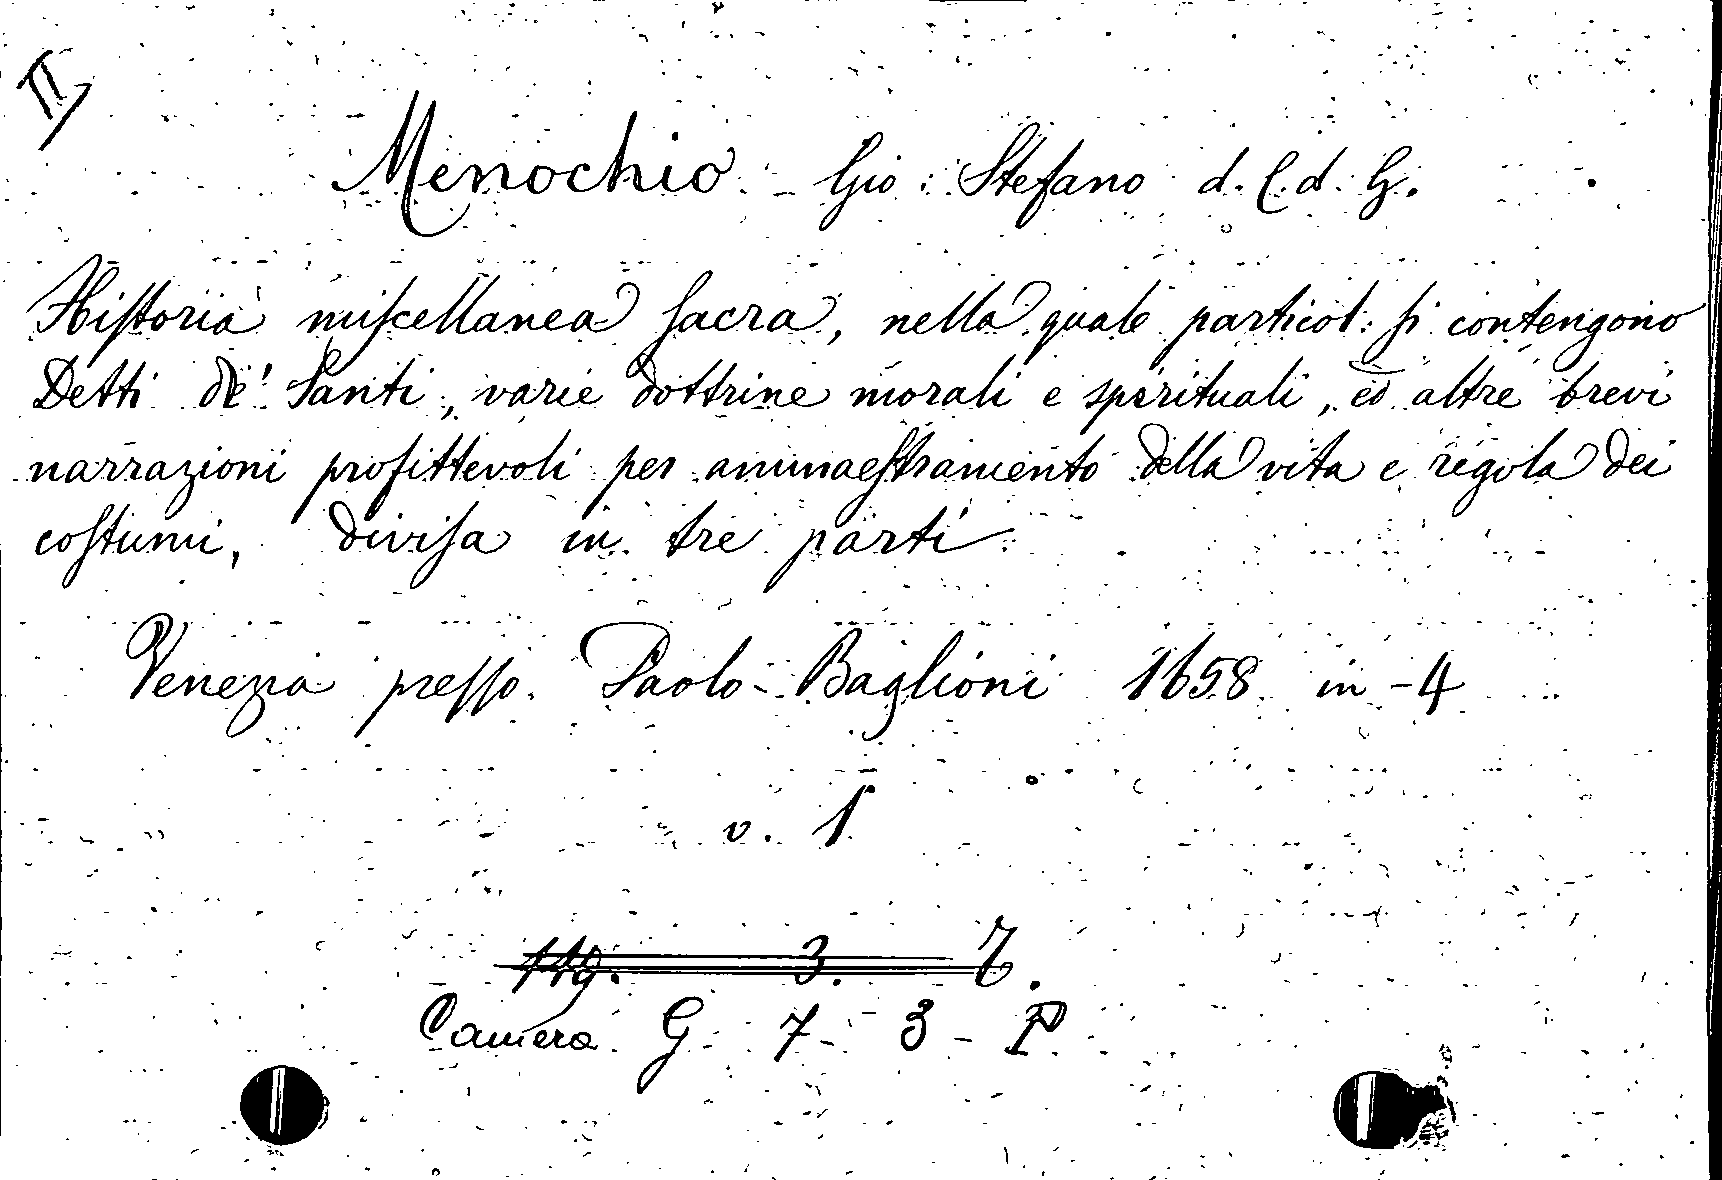 II
Menochio - Gio: Stefano d. C. d. G.
Historia miscellanea sacra, nella quale particol: si contengono
Detti de' Santi, varie dottrine morali e spirituali, ed altre brevi
narrazioni profittevoli per ammaestramento della vita e regola dei
costumi, divisa in tre parti.
Venezia presso Paolo Baglioni 1658 in-4
v. 1
119. 3. 7.
Camera G - 7 - 3 - P